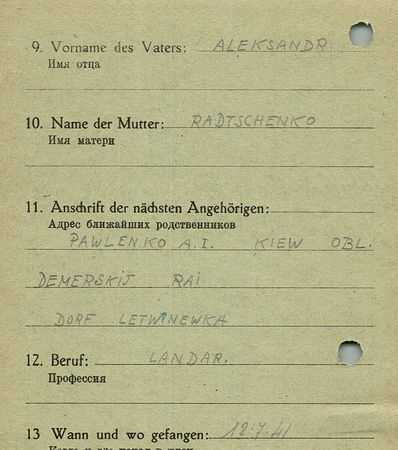 9. Vorname des Vaters: ALEKSANDR.
Имя отца
10. Name der Mutter: RADTSCHENKO
Имя матери
11. Anschrift der nächsten Angehörigen:
Адрес ближайших родственников
PAWLENKO A.I. KIEW OBL.
DEMERSKIJ RAI
DORF LETWINEWKA
12. Beruf: LANDAR.
Профессия
13 Wann und wo gefangen: 12.7.41